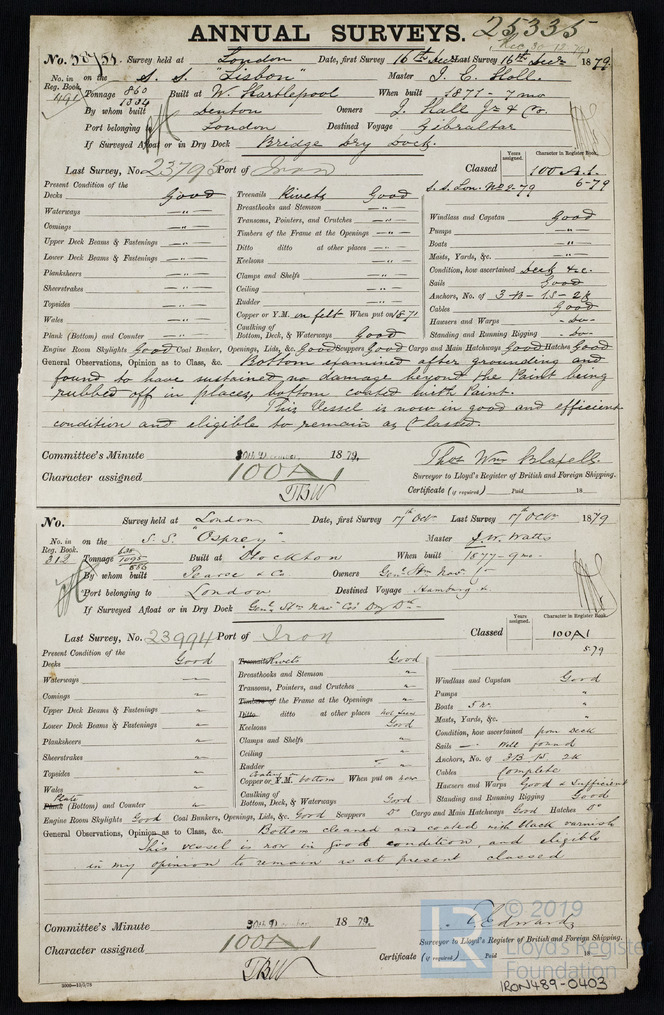 25335
ANNUAL SURVEYS.
Dec 30 1879
No. 50/51 Survey held at London Date, first Survey 16th Decr Last Survey 16th Decr 1879
No. in Reg. Book. 491 on the S. S. "Lisbon" Master J. E. Holl.
Tonnage 860 1334 Built at W. Hartlepool When built 1871 - 7 mo
By whom built Denton Owners J. Hall Jr & Co.
Port belonging to London Destined Voyage Gibraltar
If Surveyed Afloat or in Dry Dock Bridge Dry Dock.
Last Survey, No. 23795 Port of Iron Classed Years assigned. Character in Register Book. 100 A.1.
S. S. Lon. No 2-79 6-79
Present Condition of the
Decks Good Treenails Rivets Good
Waterways —"— Breasthooks and Stemson —"— Windlass and Capstan Good
Comings —"— Transoms, Pointers, and Crutches —"— Pumps —"—
Upper Deck Beams & Fastenings —"— Timbers of the Frame at the Openings —"— Boats —"—
Lower Deck Beams & Fastenings —"— Ditto ditto at other places —"— Masts, Yards, &c. —"—
Planksheers —"— Keelsons —"— Condition, how ascertained Deck &c.
Sheerstrakes —"— Clamps and Shelfs —"— Sails Good
Topsides —"— Ceiling —"— Anchors, No. of 3 B - 1 S - 2 K
Wales —"— Rudder —"— Cables Good
Copper or Y.M. on felt When put on 18-71 Hawsers and Warps - Do -
Plank (Bottom) and Counter —"— Caulking of Bottom, Deck, & Waterways Good Standing and Running Rigging - Do -
Engine Room Skylights Good Coal Bunker, Openings, Lids, &c. Good Scuppers Good Cargo and Main Hatchways Good Hatches Good
General Observations, Opinion as to Class, &c. Bottom examined after grounding and
found to have sustained no damage beyond the Paint being
rubbed off in places, bottom coated with Paint.
This Vessel is now in good and efficient
condition and eligible to remain as Classed.
Committee's Minute 30th December, 1879.
Character assigned 100A1
TBW
Thos Wm
Surveyor to Lloyd's Register of British and Foreign Shipping.
Certificate (if required) Paid 18
No. Survey held at London Date, first Survey 17 Oct Last Survey 17 Octr 1879
No. in Reg. Book. 312 on the S. S. "Osprey" Master J. W. Watts
Tonnage 1095 Built at Stockton When built 1877 - 9 mo -
By whom built Pearse & Co Owners Genl Stm Navn Co
Port belonging to London Destined Voyage Hamburg &
If Surveyed Afloat or in Dry Dock Genl Stm Navn Cos Dry Dk -
Last Survey, No. 23994 Port of Iron Classed Years assigned. Character in Register Book. 100A1
5-79
Present Condition of the
Decks Good Treenails Rivets Good
Waterways " Breasthooks and Stemson " Windlass and Capstan Good
Comings " Transoms, Pointers, and Crutches " Pumps "
Upper Deck Beams & Fastenings " Timbers of the Frame at the Openings " Boats 5 No. "
Lower Deck Beams & Fastenings " Ditto ditto at other places not seen Masts, Yards, &c. "
Planksheers " Keelsons Good Condition, how ascertained from Deck
Sheerstrakes " Clamps and Shelfs " Sails — Well found
Topsides " Ceiling " Anchors, No. of 3B 1S 2K
Wales " Rudder " Cables Complete
Coating on Copper or Y.M. bottom When put on now Hawsers and Warps Good & Sufficient
Plate Plank (Bottom) and Counter " Caulking of Bottom, Deck, & Waterways Good Standing and Running Rigging Good
Engine Room Skylights Good Coal Bunkers, Openings, Lids, &c. Good Scuppers Do Cargo and Main Hatchways Good Hatches Do
General Observations, Opinion as to Class, &c. Bottom cleaned and coated with black varnish
This vessel is now in good condition, and eligible
in my opinion to remain as at present classed
Committee's Minute 30th December 1879.
Character assigned 100A1
TBW
Edwards
Surveyor to Lloyd's Register of British and Foreign Shipping.
Certificate (if required) Paid 18
© 2019
LR
Lloyd's Register
Foundation
IRON489-0403